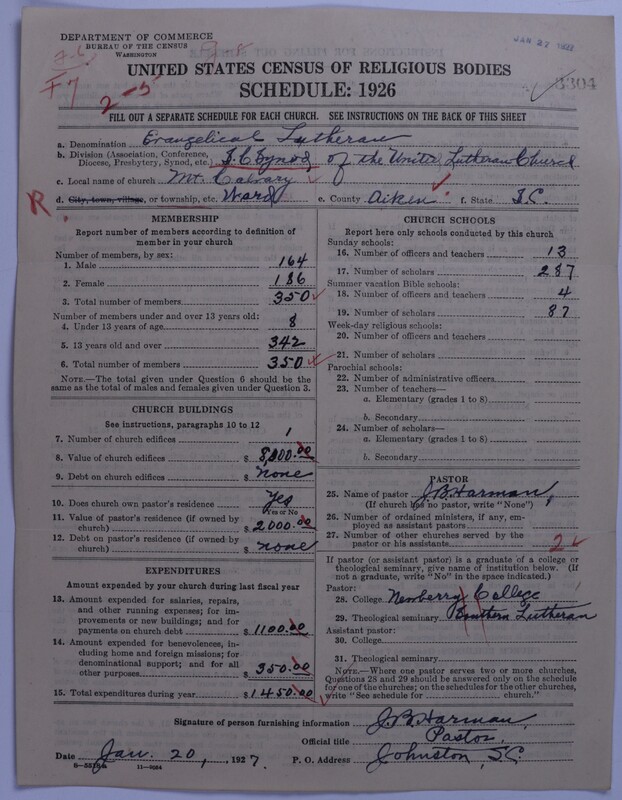 DEPARTMENT OF COMMERCE
BUREAU OF THE CENSUS
WASHINGTON
JAN 27 1927
F7
2-5
3304
UNITED STATES CENSUS OF RELIGIOUS BODIES
SCHEDULE: 1926
FILL OUT A SEPARATE SCHEDULE FOR EACH CHURCH. SEE INSTRUCTIONS ON THE BACK OF THIS SHEET
a. Denomination Evangelical Lutheran
b. Division (Association, Conference, Diocese, Presbytery, Synod, etc.) S.C. Synod of the United Lutheran Church
c. Local name of church Mt. Calvary
R. d. City, town, village, or township, etc. Ward e. County Aiken f. State S.C.
MEMBERSHIP
Report number of members according to definition of member in your church
Number of members, by sex:
1. Male 164
2. Female 186
3. Total number of members 350
Number of members under and over 13 years old:
4. Under 13 years of age 8
5. 13 years old and over 342
6. Total number of members 350
NOTE.—The total given under Question 6 should be the same as the total of males and females given under Question 3.
CHURCH BUILDINGS
See instructions, paragraphs 10 to 12
7. Number of church edifices 1
8. Value of church edifices $ 8,000.00
9. Debt on church edifices $ none
10. Does church own pastor's residence Yes
Yes or No
11. Value of pastor's residence (if owned by church) $ 2000.00
12. Debt on pastor's residence (if owned by church) $ none
EXPENDITURES
Amount expended by your church during last fiscal year
13. Amount expended for salaries, repairs, and other running expenses; for improvements or new buildings; and for payments on church debt $ 1100.00
14. Amount expended for benevolences, including home and foreign missions; for denominational support; and for all other purposes $ 350.00
15. Total expenditures during year $ 1450.00
CHURCH SCHOOLS
Report here only schools conducted by this church
Sunday schools:
16. Number of officers and teachers 13
17. Number of scholars 287
Summer vacation Bible schools:
18. Number of officers and teachers 4
19. Number of scholars 87
Week-day religious schools:
20. Number of officers and teachers
21. Number of scholars
Parochial schools:
22. Number of administrative officers
23. Number of teachers—
a. Elementary (grades 1 to 8)
b. Secondary
24. Number of scholars—
a. Elementary (grades 1 to 8)
b. Secondary
PASTOR
25. Name of pastor J.B. Harman,
(If church has no pastor, write "None")
26. Number of ordained ministers, if any, employed as assistant pastors
27. Number of other churches served by the pastor or his assistants 2
If pastor (or assistant pastor) is a graduate of a college or theological seminary, give name of institution below. (If not a graduate, write "No" in the space indicated.)
Pastor:
28. College Newberry College
29. Theological seminary Southern Lutheran
Assistant pastor:
30. College
31. Theological seminary
NOTE.—Where one pastor serves two or more churches, Questions 28 and 29 should be answered only on the schedule for one of the churches; on the schedules for the other churches, write "See schedule for church."
Signature of person furnishing information J.B. Harman,
Official title Pastor
Date Jan. 20, 1927. P. O. Address Johnston, S.C.
11—9024